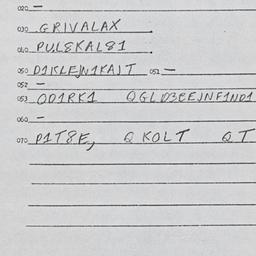 020 —
030 GRIVALAX
040 PUL8KAL81
050 D1KLEJN1KAJT 051 —
052 —
053 OD1RK1 QGLD3EEJNF1ND1
060 —
070 P1T8E, Q KOLT QT